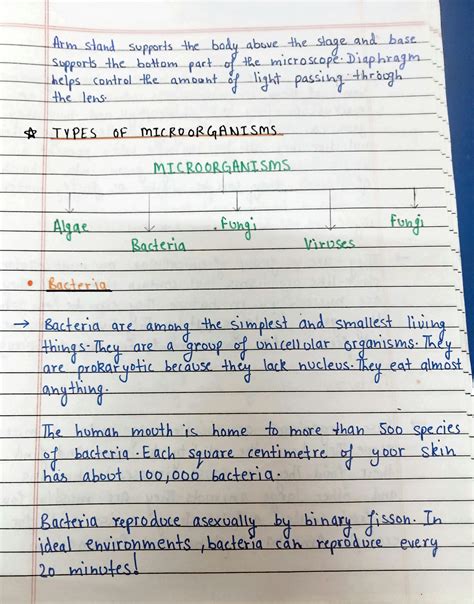 Arm stand supports the body above the stage and base
supports the bottom part of the microscope. Diaphragm
helps control the amount of light passing through
the lens.
☆ TYPES OF MICROORGANISMS
MICROORGANISMS
Algae Bacteria Fungi Viruses Fungi
• Bacteria
→ Bacteria are among the simplest and smallest living
things. They are a group of unicellular organisms. They
are prokaryotic because they lack nucleus. They eat almost
anything.
The human mouth is home to more than 500 species
of bacteria. Each square centimetre of your skin
has about 100,000 bacteria.
Bacteria reproduce asexually by binary fisson. In
ideal environments, bacteria can reproduce every
20 minutes!